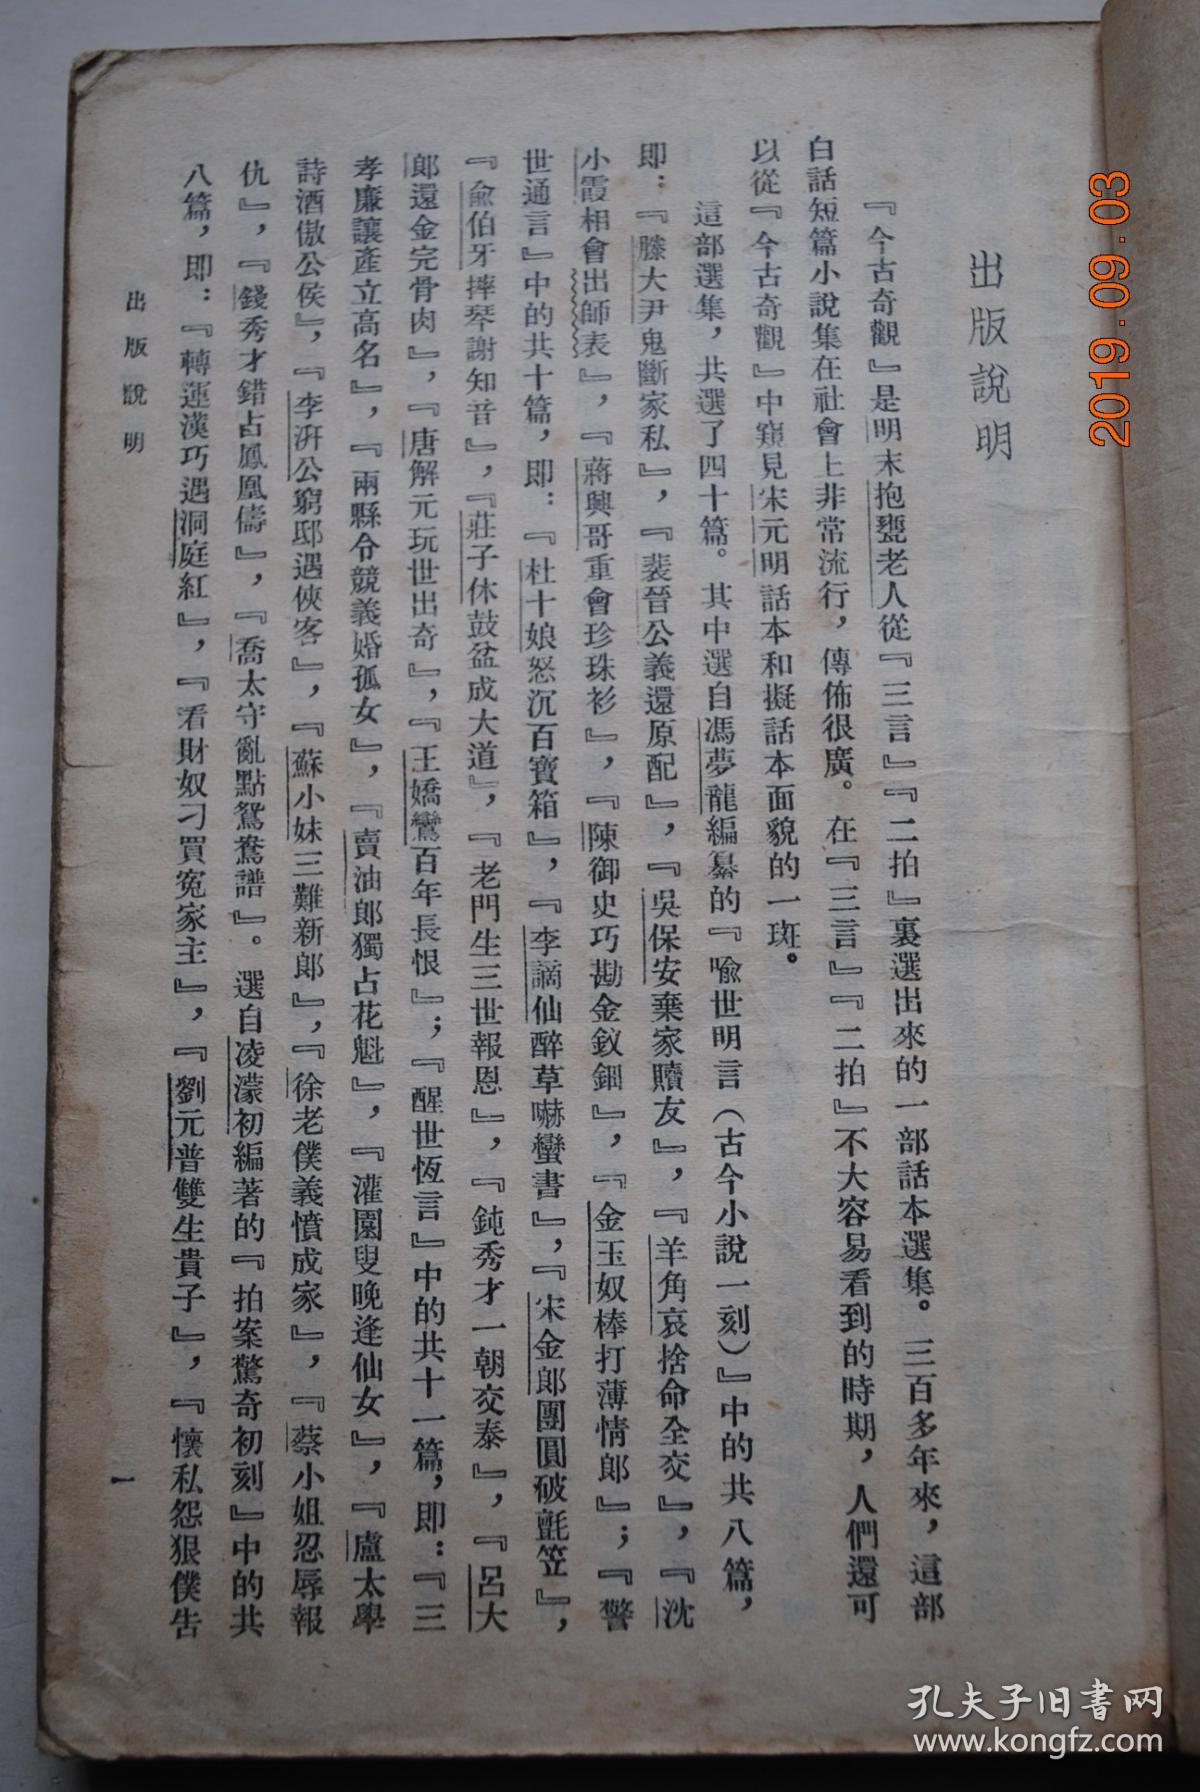 出版說明
『今古奇觀』是明末抱甕老人從『三言』『二拍』裏選出來的一部話本選集。三百多年來，這部
白話短篇小說集在社會上非常流行，傳佈很廣。在『三言』『二拍』不大容易看到的時期，人們還可
以從『今古奇觀』中窺見宋元明話本和擬話本面貌的一斑。
這部選集，共選了四十篇。其中選自馮夢龍編纂的『喩世明言（古今小說一刻）』中的共八篇，
即：『滕大尹鬼斷家私』，『裴晉公義還原配』，『吳保安棄家贖友』，『羊角哀捨命全交』，『沈
小霞相會出師表』，『蔣興哥重會珍珠衫』，『陳御史巧勘金釵鈿』，『金玉奴棒打薄情郎』；『警
世通言』中的共十篇，即：『杜十娘怒沉百寶箱』，『李謫仙醉草嚇蠻書』，『宋金郎團圓破氈笠』，
『兪伯牙摔琴謝知音』，『莊子休鼓盆成大道』，『老門生三世報恩』，『鈍秀才一朝交泰』，『呂大
郎還金完骨肉』，『唐解元玩世出奇』，『王嬌鸞百年長恨』；『醒世恆言』中的共十一篇，即：『三
孝廉讓產立高名』，『兩縣令競義婚孤女』，『賣油郎獨占花魁』，『灌園叟晚逢仙女』，『盧太學
詩酒傲公侯』，『李汧公窮邸遇俠客』，『蘇小妹三難新郎』，『徐老僕義憤成家』，『蔡小姐忍辱報
仇』，『錢秀才錯占鳳凰儔』，『喬太守亂點鴛鴦譜』。選自凌濛初編著的『拍案驚奇初刻』中的共
八篇，即：『轉運漢巧遇洞庭紅』，『看財奴刁買冤家主』，『劉元普雙生貴子』，『懷私怨狠僕告
出版說明
一
2019.09.03
孔夫子旧书网
www.kongfz.com